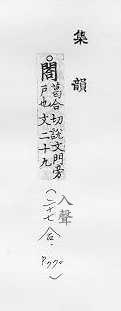 集韻
○閤
葛合切說文門旁
戶也文二十九
入聲
(二十七合·